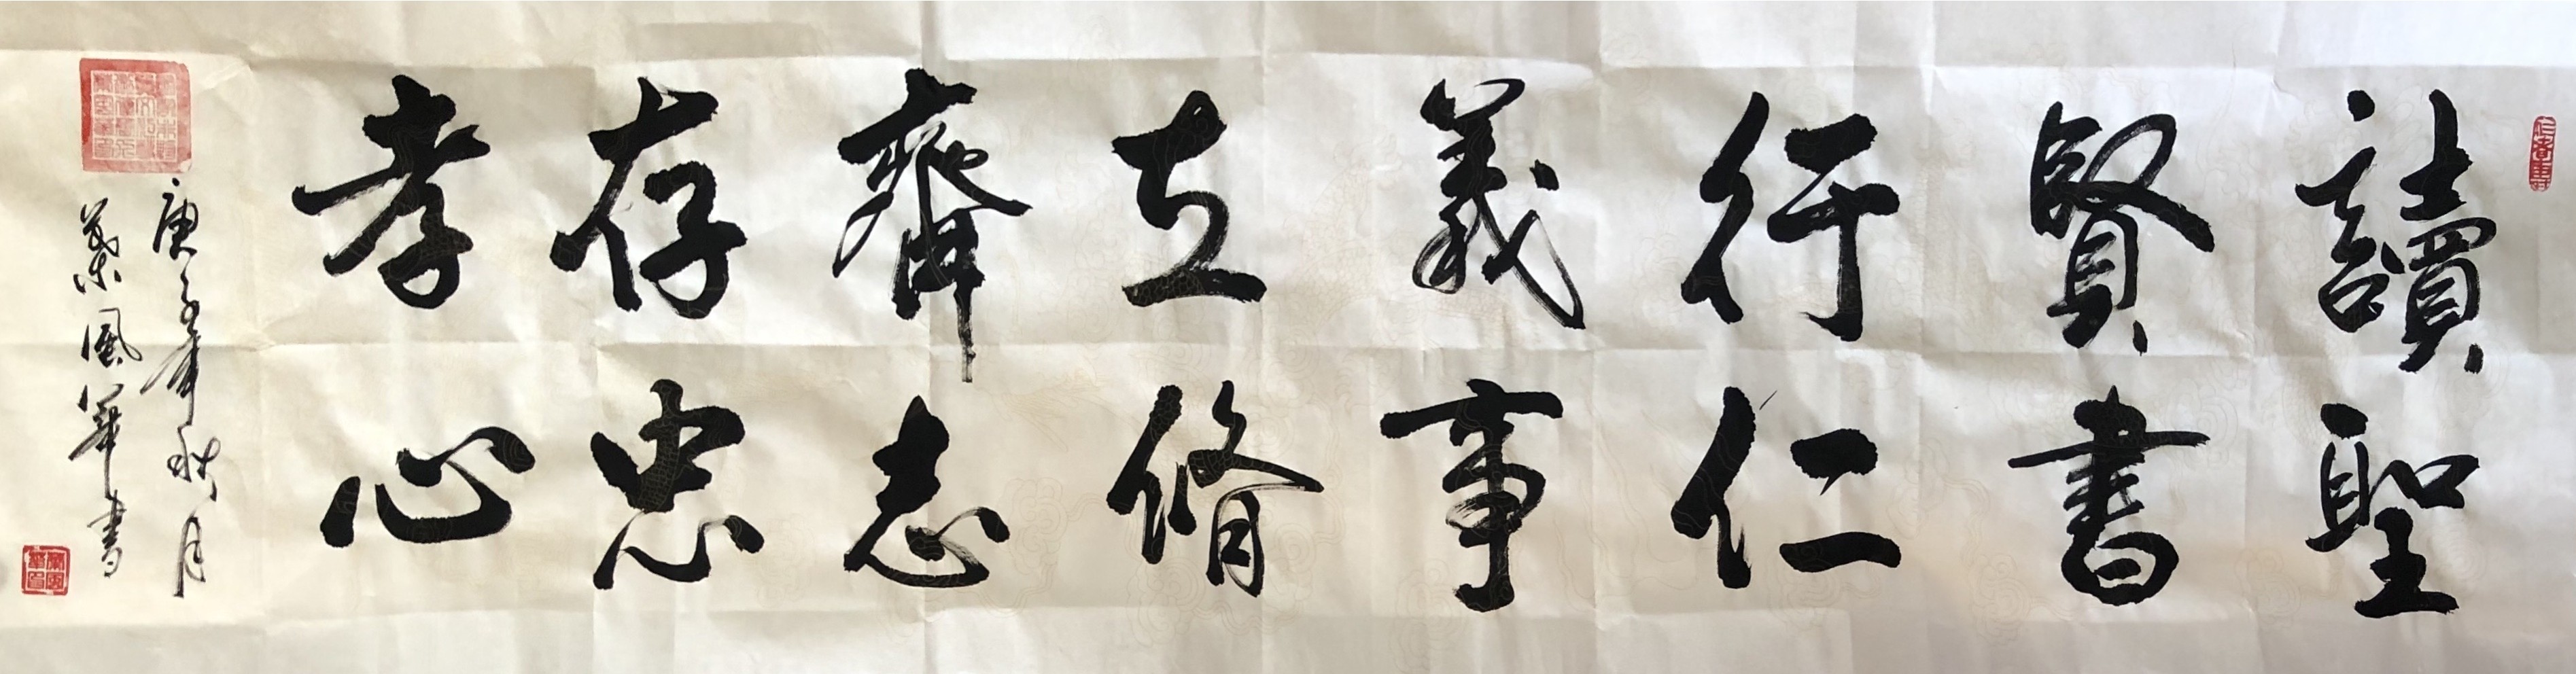 讀聖
賢書
行仁
義事
立脩
齊志
存忠
孝心
庚子年秋月
葉風華書